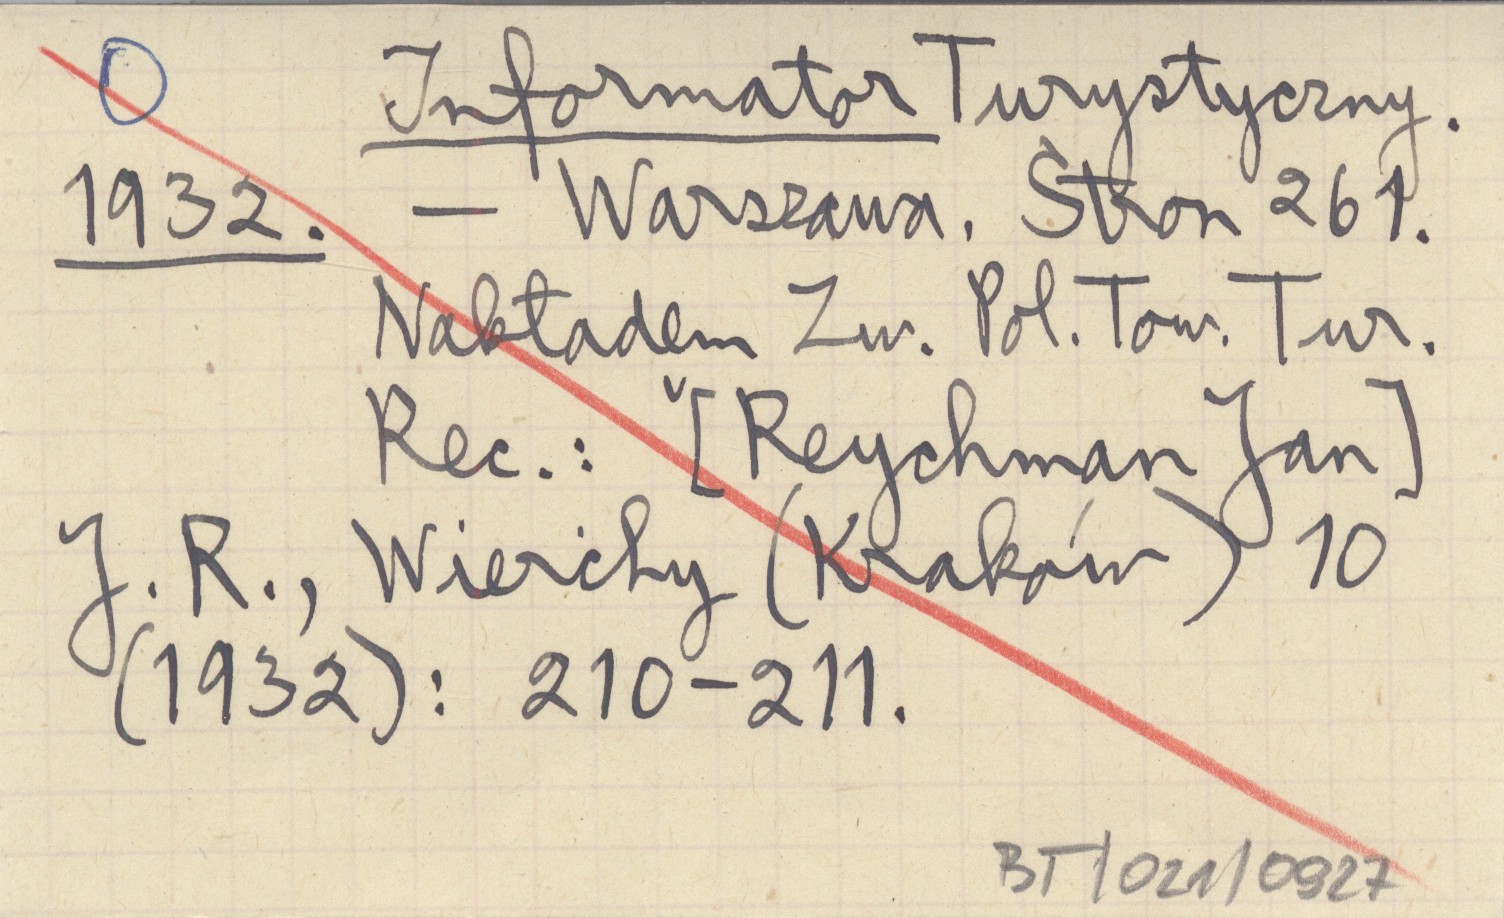 O Informator Turystyczny.
1932. — Warszawa. Stron 261.
Nakładem Zw. Pol. Tow. Tur.
Rec.: [Reychman Jan]
J. R., Wierchy (Kraków) 10
(1932): 210-211.
BT/021/0927